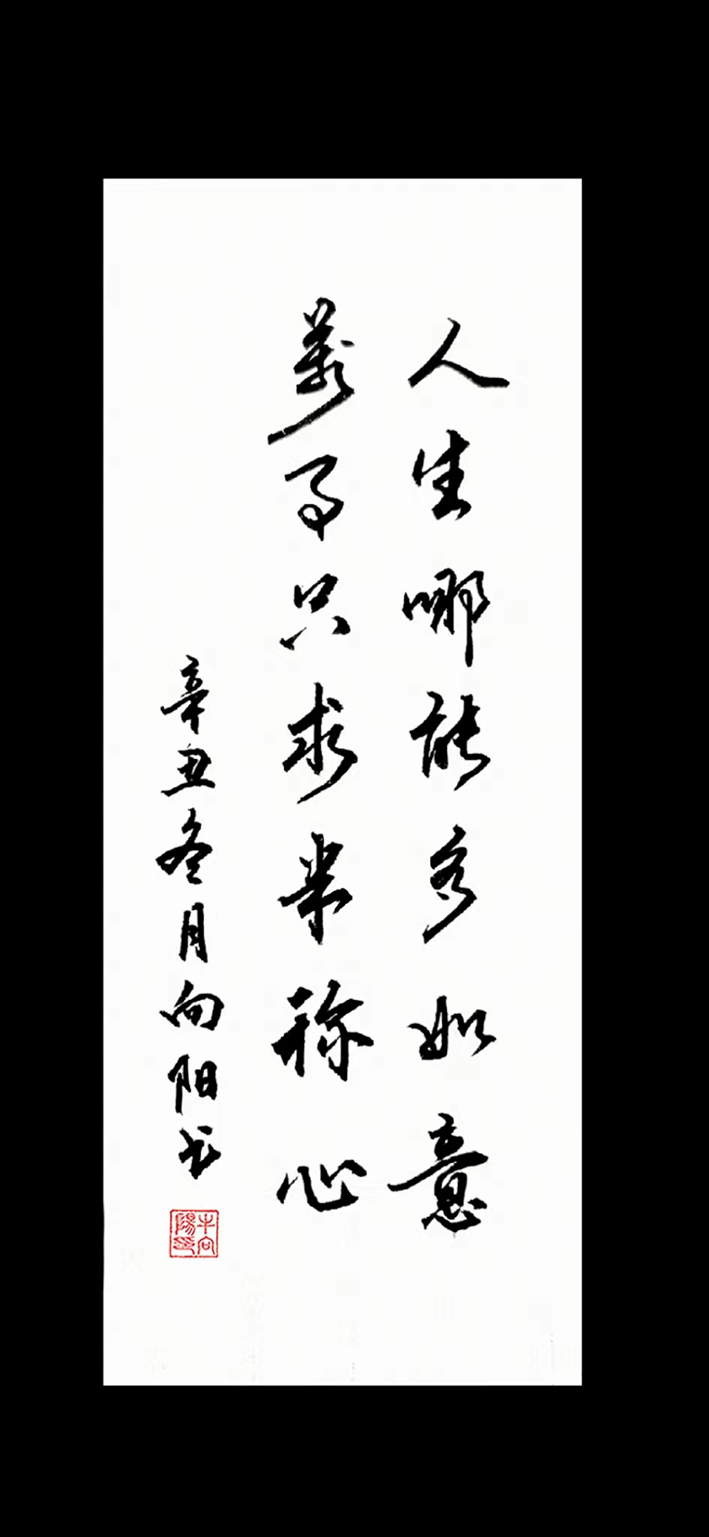 人生哪能多如意
萬事只求半称心
辛丑冬月向阳书
牛向陽印